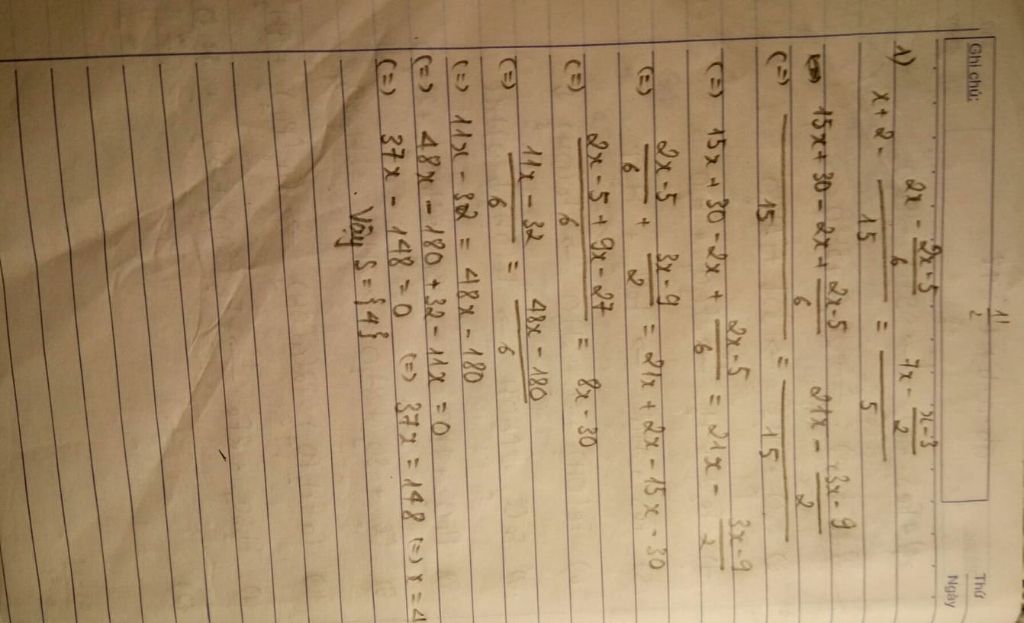 Ghi chú:
Thứ
Ngày
1) x + 2 - (2x - (2x-5)/6)/15 = (7x - (x-3)/2)/5
(=) (15x + 30 - 2x + (2x-5)/6)/15 = (21x - (3x-9)/2)/15
(=) 15x + 30 - 2x + (2x-5)/6 = 21x - (3x-9)/2
(=) (2x-5)/6 + (3x-9)/2 = 21x + 2x - 15x - 30
(=) (2x - 5 + 9x - 27)/6 = 8x - 30
(=) (11x - 32)/6 = (48x - 180)/6
(=) 11x - 32 = 48x - 180
(=) 48x - 180 + 32 - 11x = 0
(=) 37x - 148 = 0 (=) 37x = 148 (=) x = 4
Vậy S = {4}